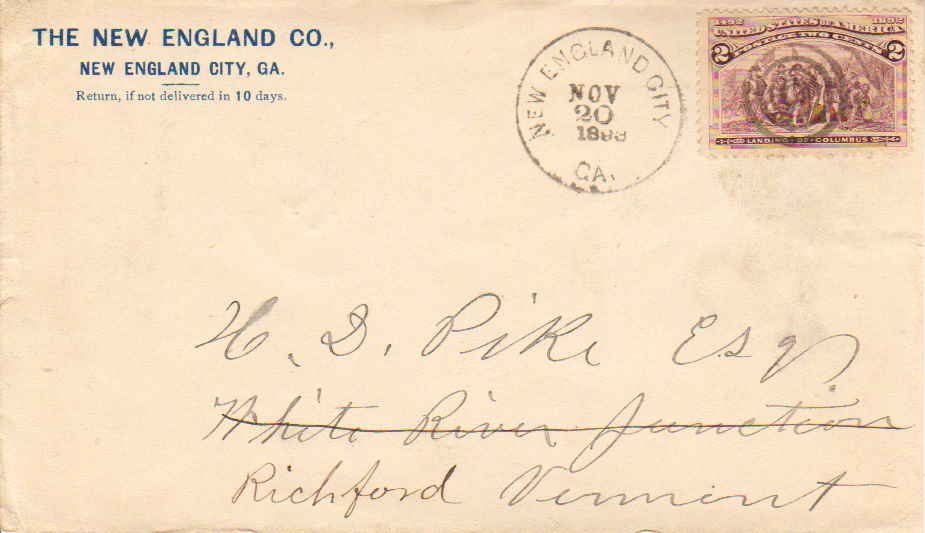 THE NEW ENGLAND CO.,
NEW ENGLAND CITY, GA.
Return, if not delivered in 10 days.
NEW ENGLAND CITY
NOV
20
1893
GA.
1492 1892
UNITED STATES OF AMERICA
POSTAGE TWO CENTS
2 2
LANDING OF COLUMBUS
H. D. Pike Esq.
White River Junction
Richford Vermont